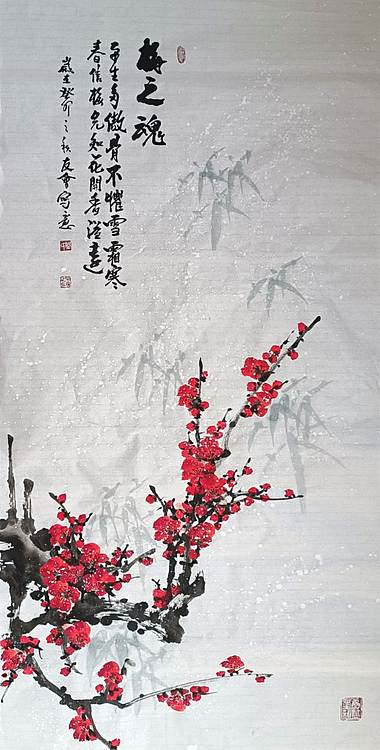 梅之魂
平生多傲骨不懼雪霜寒
春信梅先知花開香溢遠
歲在癸卯之秋友會寫意